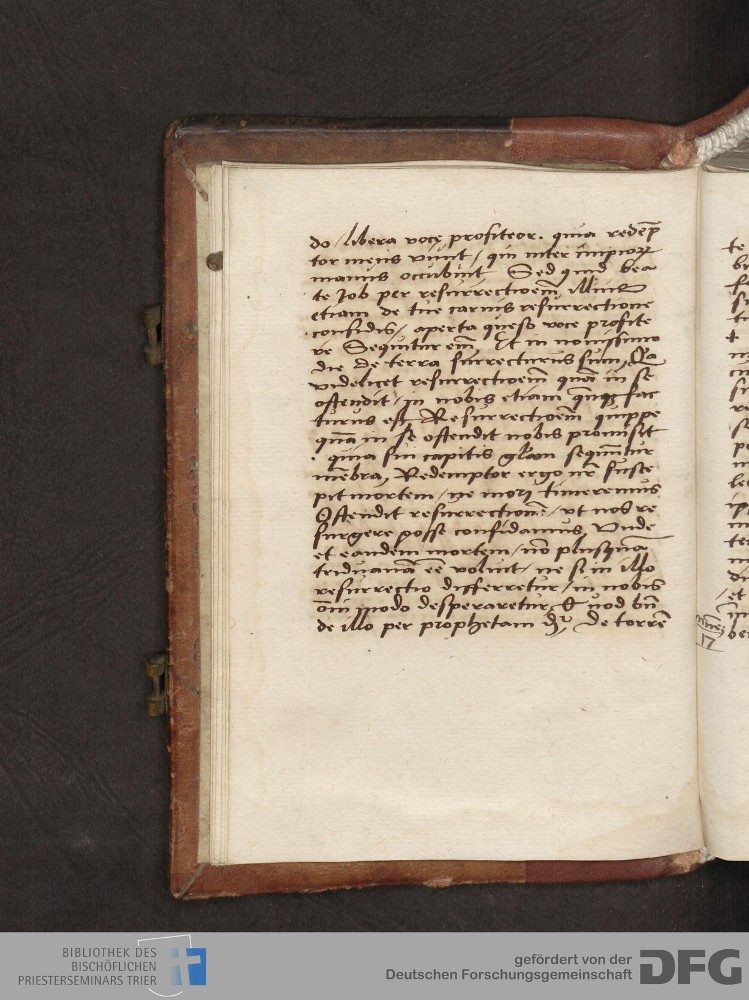 do / libera voce profiteor. quia redēp
tor meus viuit / qui inter impiorꝝ
manus occubuit Sed quid bea
te Job per resurrectioem̄ illius
etiam de tue carnis resurrectione
confidis / aperta queso voce profite
re Sequitur em̄ Et in nouissimo
die de terra surrecturus sum, Qa
videlicet resurrectioem̄ quā in se
ostendit / in nobis etiam
turus est Resurrectioem̄ quippe
quā in se ostendit nobis promisit
. quia sui capitis gl̄am sequuntur
mēbra, Redemptor ergo nr̄ susce
pit mortem / ne mori timeremus
Ostendit resurrectionē / vt nos re
surgere posse confidamus Vnde
et eandem mortem / nō plusquā
triduanā eē voluit / ne si in illo
resurrectio differretur / in nobis
om̄i modo desperaretur, Quod bn̄
de illo per prophetam dr̄, De torrē
te
17
BIBLIOTHEK DES
BISCHÖFLICHEN
PRIESTERSEMINARS TRIER
gefördert von der
Deutschen Forschungsgemeinschaft
DFG